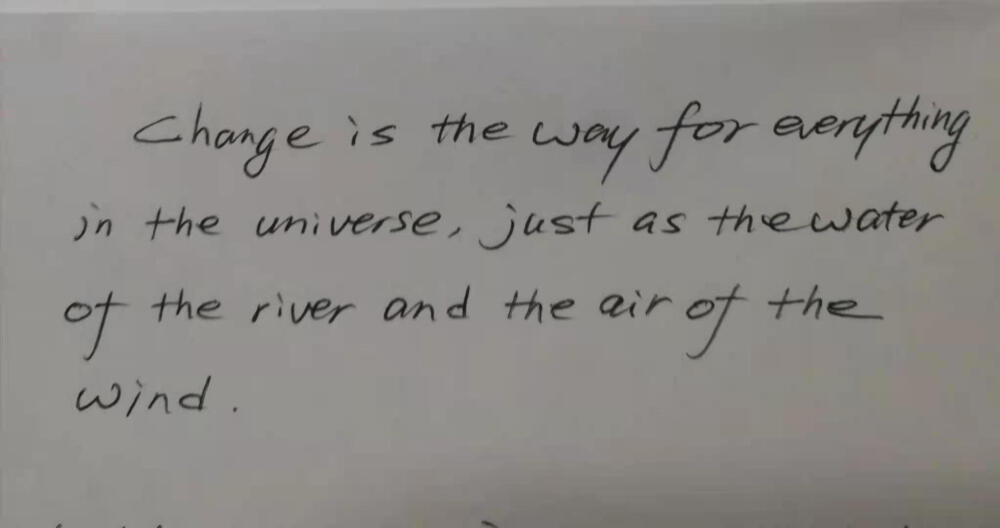 Change is the way for everything
in the universe, just as the water
of the river and the air of the
wind.